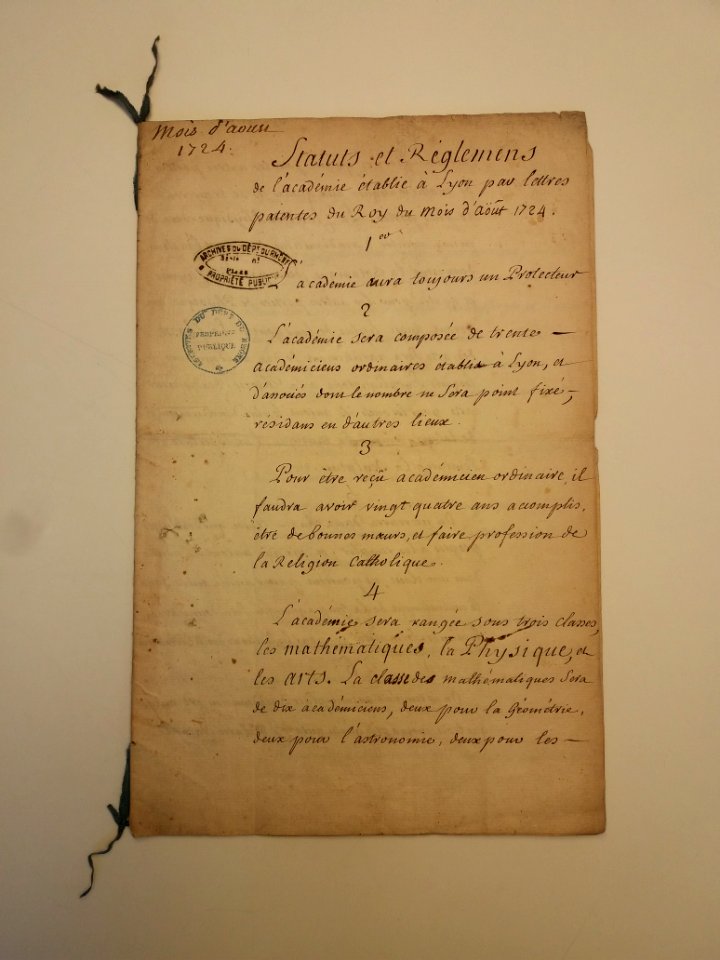 Mois d'aoust
1724.
Statuts et Réglemens
de l'académie établie à Lyon par lettres
patentes du Roy du mois d'août 1724.
1er
ARCHIVES DU DÉPT DU RHÔNE
PROPRIÉTÉ PUBLIQUE
L'académie aura toujours un Protecteur
2
ARCHIVES DU DÉPT DU RHÔNE
PROPRIÉTÉ
PUBLIQUE
L'académie sera composée de trente —
académiciens ordinaires établis à Lyon, et
d'associés dont le nombre ne Sera point fixé,
résidans en d'autres lieux.
3
Pour être reçû académicien ordinaire, il
faudra avoir vingt quatre ans accomplis,
être de bonnes mœurs, et faire profession de
la Religion Catholique.
4
L'académie sera rangée sous trois classes,
les mathématiques, la Physique, et
les arts. La classe des mathématiques Sera
de dix académiciens, deux pour la Géométrie,
deux pour l'astronomie, deux pour les —